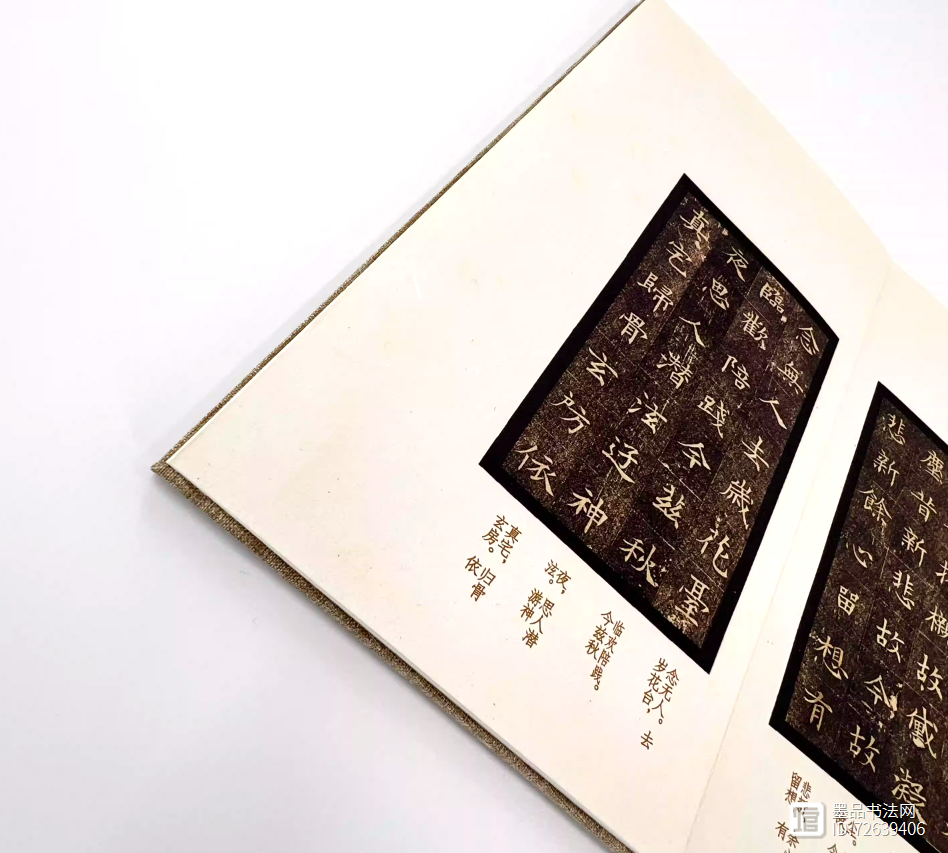 櫬故黛凝
塵昔新悲故今故
悲新餘心留想有
念無人去歲花臺
臨歡陪踐今茲秋
夜思人潛泫迳神
真宅歸骨玄房依
留想
有
念无人。去
岁花台，
临欢陪践。
今兹秋
夜，思人潜
泫。游神
真宅，归骨
玄房。依
墨品书法网
ID:72639406